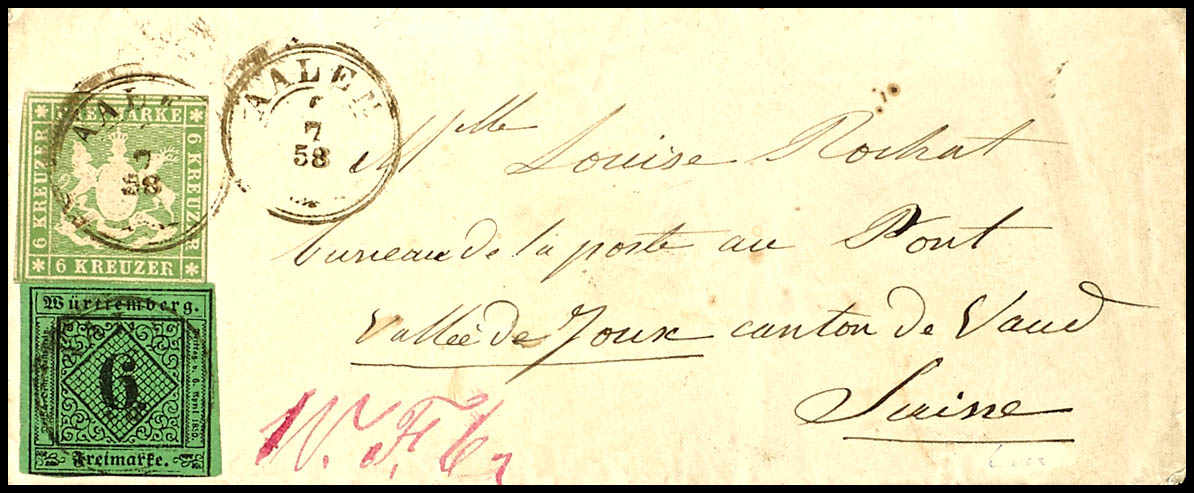 AALEN
7
58
AAL
58
FREIMARKE
6 KREUZER
6 KREUZER
6 KREUZER
Württemberg.
6
Freimarke.
Mlle Louise Rochat
bureau de la poste au Pont
Vallée de Joux canton de Vaud
Suisse
W. F. 6